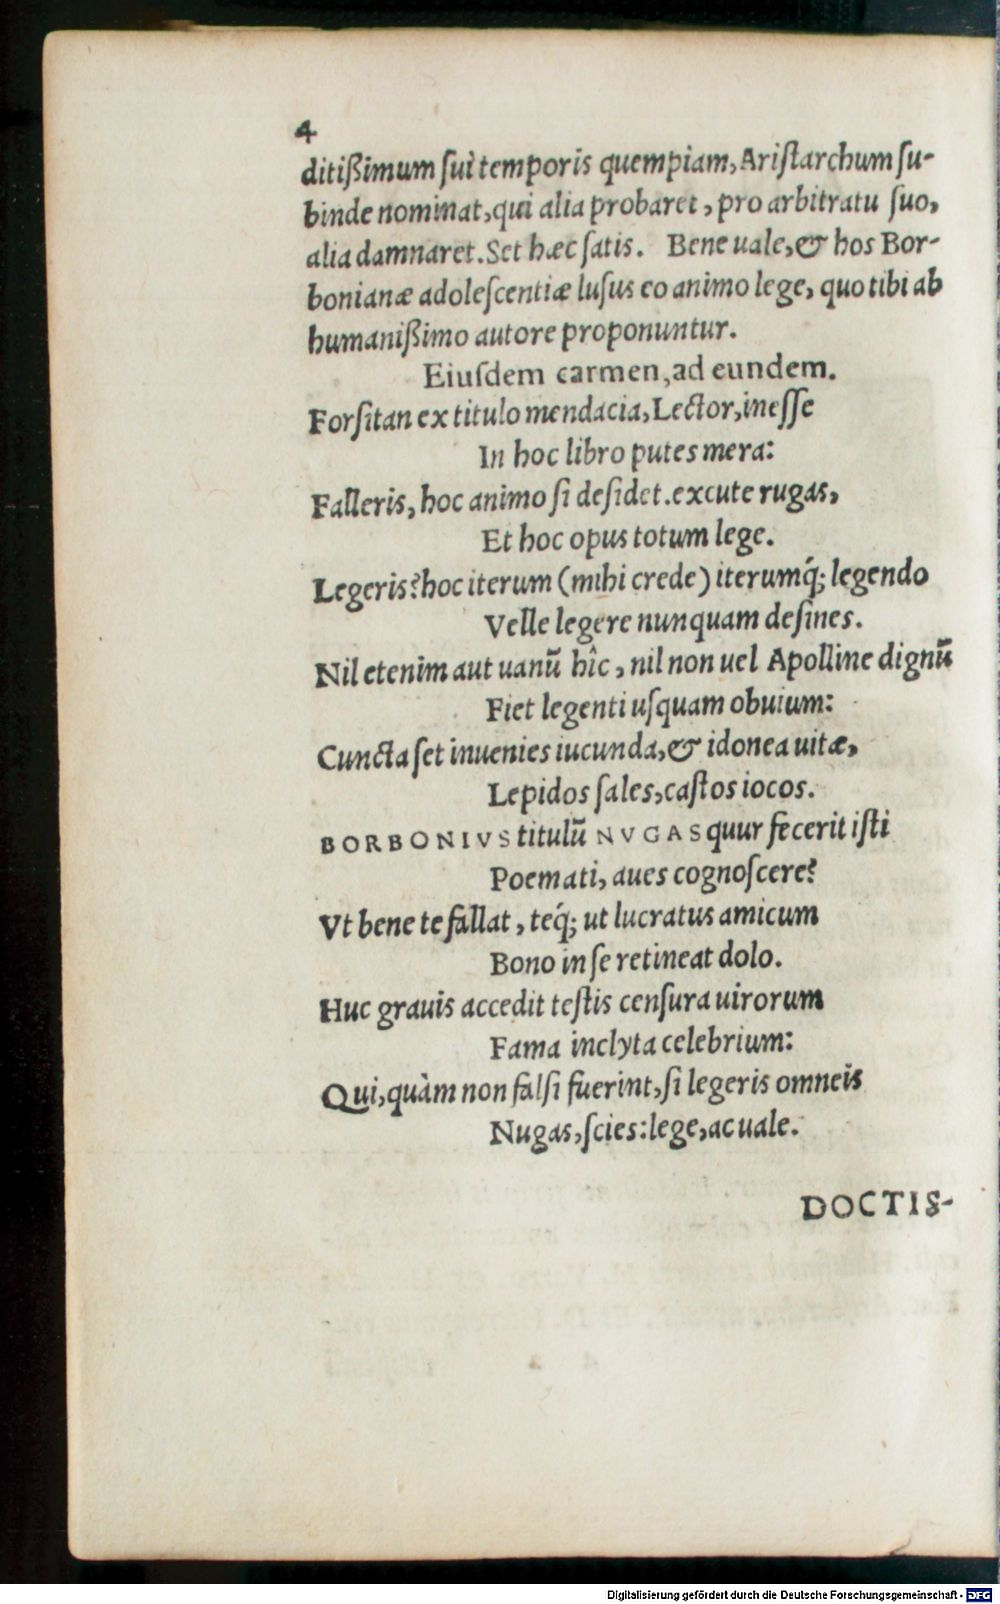 4
ditißimum ſui temporis quempiam, Ariſtarchum ſu-
binde nominat, qui alia probaret, pro arbitratu ſuo,
alia damnaret. Set hæc ſatis. Bene uale, & hos Bor-
bonianæ adoleſcentiæ luſus eo animo lege, quo tibi ab
humanißimo autore proponuntur.
Eiuſdem carmen, ad eundem.
Forſitan ex titulo mendacia, Lector, ineſſe
In hoc libro putes mera:
Falleris, hoc animo ſi deſidet. excute rugas,
Et hoc opus totum lege.
Legeris? hoc iterum (mihi crede) iterumq́; legendo
Velle legere nunquam deſines.
Nil etenim aut uanũ hîc, nil non uel Apolline dignũ
Fiet legenti uſquam obuium:
Cuncta ſet inuenies iucunda, & idonea uitæ,
Lepidos ſales, caſtos iocos.
BORBONIVS titulũ NVGAS quur fecerit iſti
Poemati, aues cognoſcere?
Vt bene te fallat, teq́; ut lucratus amicum
Bono in ſe retineat dolo.
Huc grauis accedit teſtis cenſura uirorum
Fama inclyta celebrium:
Qui, quàm non falſi fuerint, ſi legeris omneis
Nugas, ſcies: lege, ac uale.
DOCTIS-
Digitalisierung gefördert durch die Deutsche Forschungsgemeinschaft - DFG